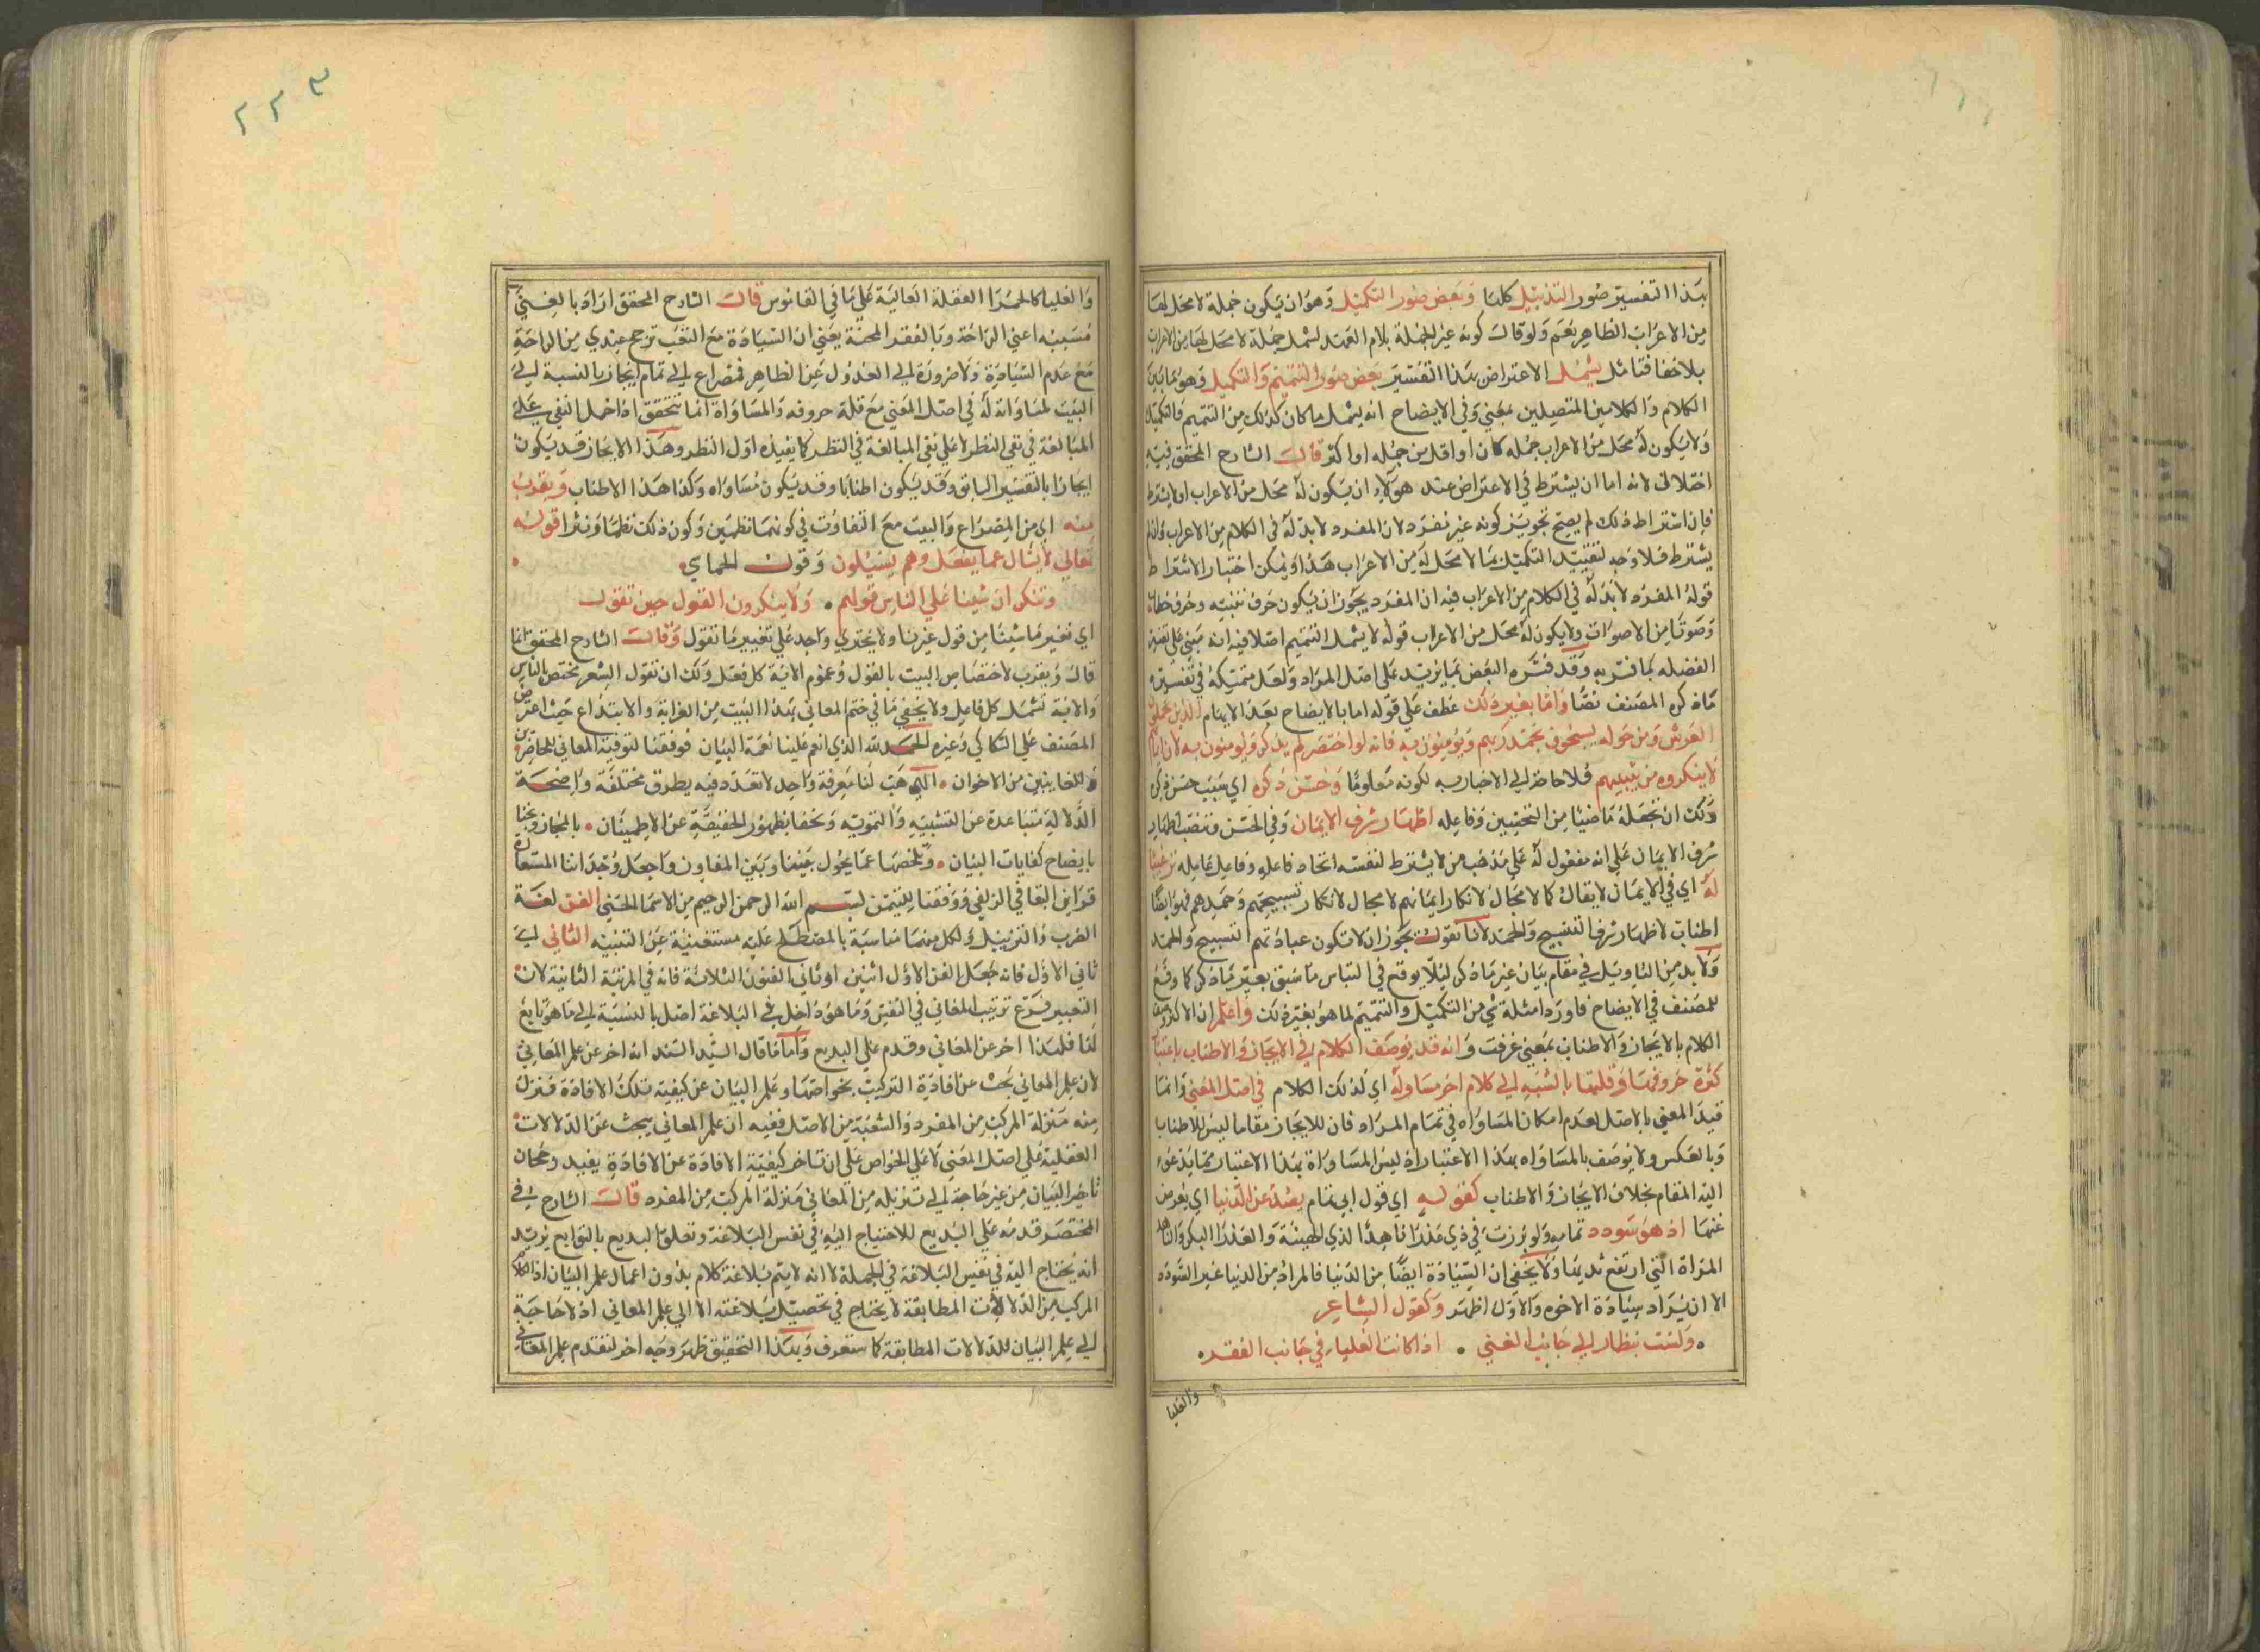 بهذا التفسير صور التذييل كلها وبعض صور التكميل وهو ان يكون جملة لا محل لها
من الاعراب الظاهر بعم ولو قال كونه غير الجملة بلام العهد لشمل جملة لا محل لها من الاعراب
بلا خفا فتامل يشمل الاعتراض بهذا التفسير بعض صور التتميم والتكميل وهو ما بين
الكلام والكلامين المتصلين بمعنى وفي الايضاح انه يشمل ما كان كذلك من التتميم والتكميل
ولا يكون له محل من الاعراب جمله كان او اقل من جمله او اكثر قال الشارح المحقق فيه
اختلال لانه اما ان يشترط في الاعتراض عند هولاء ان يكون له محل من الاعراب او لا يشترط
فان اشترط ذلك لم يصح تجويز كونه غير مفرد لان المفرد لا بد له في الكلام من الاعراب وان لم
يشترط فلا وجه لتقييد التكميل بما لا محل له من الاعراب هذا ويمكن اختيار الاشتراط
قوله المفرد لا بد له في الكلام من الاعراب فيه ان المفرد يجوز ان يكون حرف تنبيه وحرف خطاب
وصوتا من الاصوات ولا يكون له محل من الاعراب قوله لا يشمل التتميم اصلا فيه انه مبني على تفسير
الفضله بما فسر به وقد فسره البعض بما يزيد على اصل المراد ولعل متمسكه في تفسيره
ما ذكره المصنف نصا واما بغير ذلك عطف على قوله اما بالايضاح بعد الابهام الذين يحملون
العرش ومن حوله يسبحون بحمد ربهم ويؤمنون به فانه لو اختصر لم يذكر ويؤمنون به لان ايمانهم
لا ينكره من يثبتهم فلا حاجة الى الاخبار به لكونه معلوما وحسن ذكره اي سبب حسن ذكره
ولك ان تجعله ماضيا من التحسين وفاعله اظهار شرف الايمان وفي الحسن ونصب اظهار
شرف الايمان على انه مفعول له على مذهب من لا يشترط لنصبه اتحاد فاعله وفاعل عامله ترغيبا
له اي في الايمان لا يقال كما لا مجال لانكار ايمانهم لا مجال لانكار تسبيحهم وحمدهم فهو ايضا
اطناب لاظهار شرف التسبيح والحمد لانا نقول يجوز ان لا تكون عبادتهم التسبيح والحمد
ولا بد من التاويل في مقام بيان غير ما ذكر لئلا يوقع في التباس ما سبق بغير ما ذكر كما وقع
للمصنف في الايضاح فاورد امثلة شي من التكميل والتتميم لما هو بغير ذلك واعلم ان الاكثر وصف
الكلام بالايجاز والاطناب بمعنى عرفت وانه قد يوصف الكلام في الايجاز والاطناب باعتبار
كثرة حروفها وقلتها بالنسبة الى كلام اخر مساو له اي لذلك الكلام في اصل المعنى وانما
قيد المعنى بالاصل لعدم امكان المساواه في تمام المراد فان للايجاز مقاما ليس للاطناب
وبالعكس ولا يوصف بالمساواه بهذا الاعتبار اذ ليس المساواة بهذا الاعتبار مما يدعو
اليه المقام بخلاف الايجاز والاطناب كقوله اي قول ابي تمام يصد عن الدنيا اي يعرض
عنها اذ هو سودد تمامه ولو برزت في ذي عذرا ناهد الذي الهيئة والعذرا البكر والناهد
المراة التي ارتفع ثديها ولا يخفى ان السيادة ايضا من الدنيا فالمراد من الدنيا غير السودد
الا ان يراد سيادة الاخره والاول اظهر وكقول الشاعر
ولست بنظار الى جانب الغنى • اذا كانت العلياء في جانب الفقر
والعليا
٢٢٣
والعليا كالحمرا الفعلة العالية على ما في القاموس قال الشارح المحقق اراد بالغنى
مسببه اعني الراحة وبالفقر المحنة يعني ان السيادة مع التعب ترجح عندي من الراحة
مع عدم السيادة ولا ضرورة الى العدول عن الظاهر فمصراع ابي تمام ايجاز بالنسبة الى
البيت لمساواته له في اصل المعنى مع قلة حروفه والمساواة انما تتحقق اذا حمل النفي على
المبالغة في نفي النظر لا على نفي المبالغة في النظر كما يفيده اول النظر وهذا الايجاز قد يكون
ايجازا بالتفسير السابق وقد يكون اطنابا وقد يكون مساواه وكذا هذا الاطناب ويقرب
منه اي من المصراع والبيت مع التفاوت في كونهما نظمين وكون ذلك نظما ونثرا قوله
تعالى لا يسال عما يفعل وهم يسئلون وقول الحماسي
وننكر ان شينا على الناس قولهم • ولا ينكرون القول حين نقول
اي نغير ما شينا من قول غيرنا ولا يجتري واحد على تغيير ما نقول وقال الشارح المحقق انما
قال ويقرب لاختصاص البيت بالقول وعموم الاية كل فعل ولك ان تقول الشعر مختص بالناس
والاية تشمل كل فاعل ولا يخفى ما في ختم المعاني بهذا البيت من الغرابة والابتداع حيث اعترض
المصنف على السكاكي وغيره الحمد لله الذي انعم علينا نعمة البيان فوفقنا لتوفية المعاني للحاضرين
والغايبين من الاخوان • اللهم هب لنا معرفة واحد لا تعدد فيه بطرق مختلفة واضحة
الدلالة متباعدة عن التشبيه والتمويه وتحفا بظهور الحقيقة عن الاطمينان • بالمجاز ونجنا
بايضاح كنايات البيان • وتلخصها عما يحول بيننا وبين المعاون واجعل وجداننا المستعار
قراين البقا في الزلفى ووفقنا للتيمن ببسم الله الرحمن الرحيم من الاسما الحسنى الفن لغة
الضرب والتزيين ولكل منهما مناسبة بالمصطلح عليه مستغنية عن التنبيه الثاني اي
ثاني الاول فانه جعل الفن الاول اثنين او ثاني الفنون الثلاثة فانه في المرتبة الثانية لان
التعبير فرع ترتيب المعاني في النفس وما هو داخل في البلاغة اصل بالنسبة الى ما هو تابع
لها فلهذا اخر عن المعاني وقدم على البديع واما ما قال السيد السند انه اخر عن علم المعاني
لان علم المعاني بحث عن افادة التركيب بخواصها وعلم البيان عن كيفية تلك الافادة فنزل
منه منزلة المركب من المفرد والشعبة من الاصل ففيه ان علم المعاني يبحث عن الدلالات
العقلية على اصل المعنى لا على الخواص على ان تاخر كيفية الافادة عن الافادة يفيد رجحان
تاخير البيان من غير حاجة الى تنزيله من المعاني منزلة المركب من المفرد قال الشارح في
المختصر قدمه على البديع للاحتياج اليه في نفس البلاغة وتعلق البديع بالتوابع يريد
انه يحتاج اليه في نفس البلاغة في الجملة لا انه لا يتم بلاغة كلام بدون اعمال علم البيان اذ الكلام
المركب من الدلالات المطابقة لا يحتاج في تحصيل بلاغته الا الى علم المعاني اذ لا حاجة
الى علم البيان للدلالات المطابقة كما ستعرف وبهذا التحقيق ظهر وجه اخر لتقدم علم المعاني